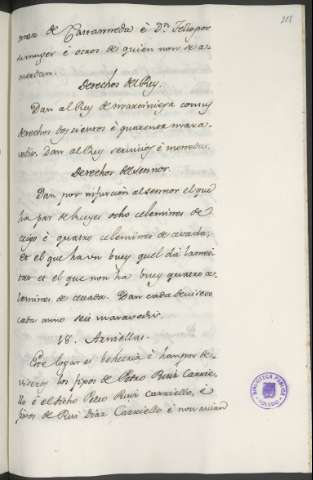 211
mea de Castannieda è Dⁿ. Tello por
su muger è otros de quien non se a-
cuerdan.
Derechos del Rey.
Dan al Rey de marçiniega con sus
derechos dosçientos è quarenta mara-
vedis. Dan al Rey servicios è monedas.
Derechos del Sennor.
Dan por infurçion al sennor el que
ha par de bueyes ocho celemines de
trigo è quatro celemines de cevada,
Et el que ha un buey quel dà la mei-
tat et el que non ha buey quatro ce-
lemines de cevada. Dan cada
cada anno seis maravedis.
18. Arniellas.
Este logar es behetria è han por de-
viseros los fijos de Pero Ruiz Carrie-
llo è el dicho Pero Ruiz Carriello, è
fijos de Rui Diaz Carriello è non avian
BIBLIOTECA PUBLICA
TOLEDO